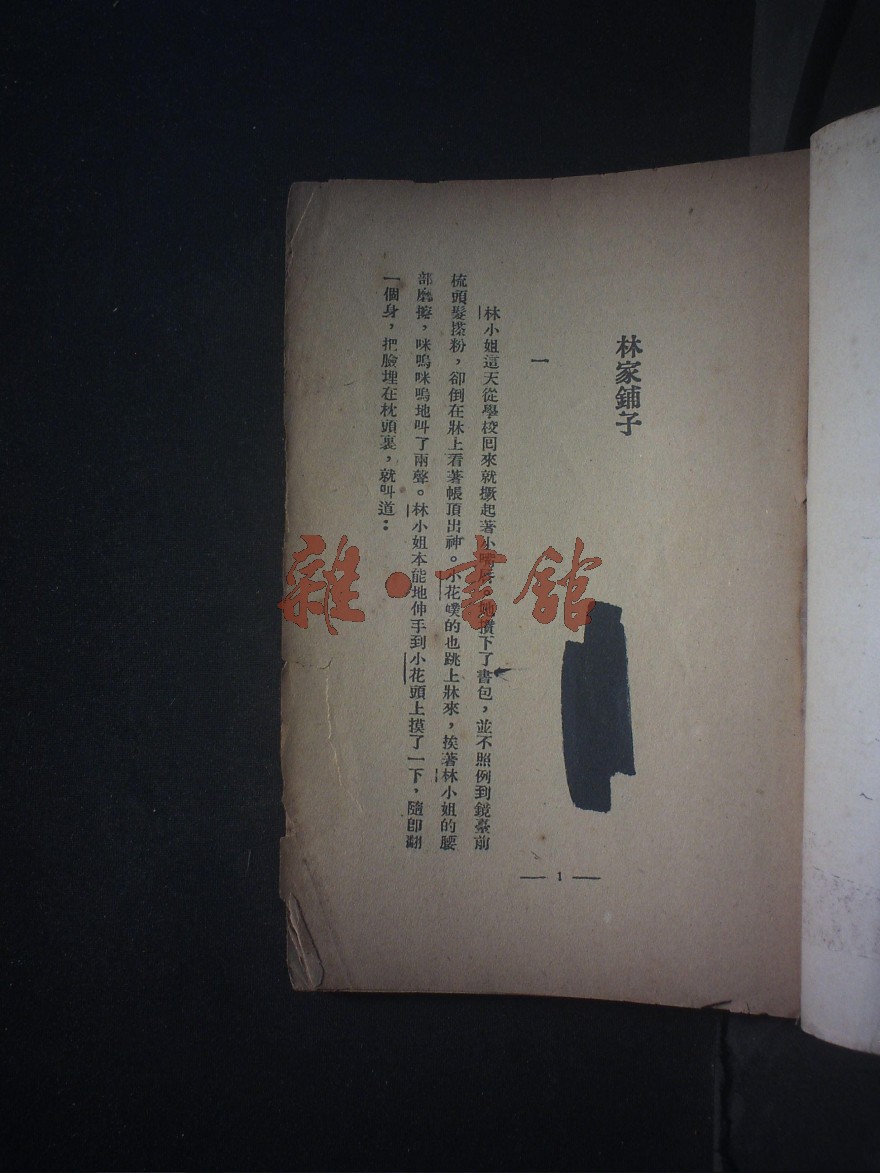 林家鋪子
一
林小姐這天從學校囘來就撅起著小嘴唇。她摜下了書包，並不照例到鏡臺前
梳頭髮搽粉，卻倒在牀上看著帳頂出神。小花噗的也跳上牀來，挨著林小姐的腰
部磨擦，咪嗚咪嗚地叫了兩聲。林小姐本能地伸手到小花頭上摸了一下，隨卽翻
一個身，把臉埋在枕頭裏，就叫道：
— 1 —
雜·書舘